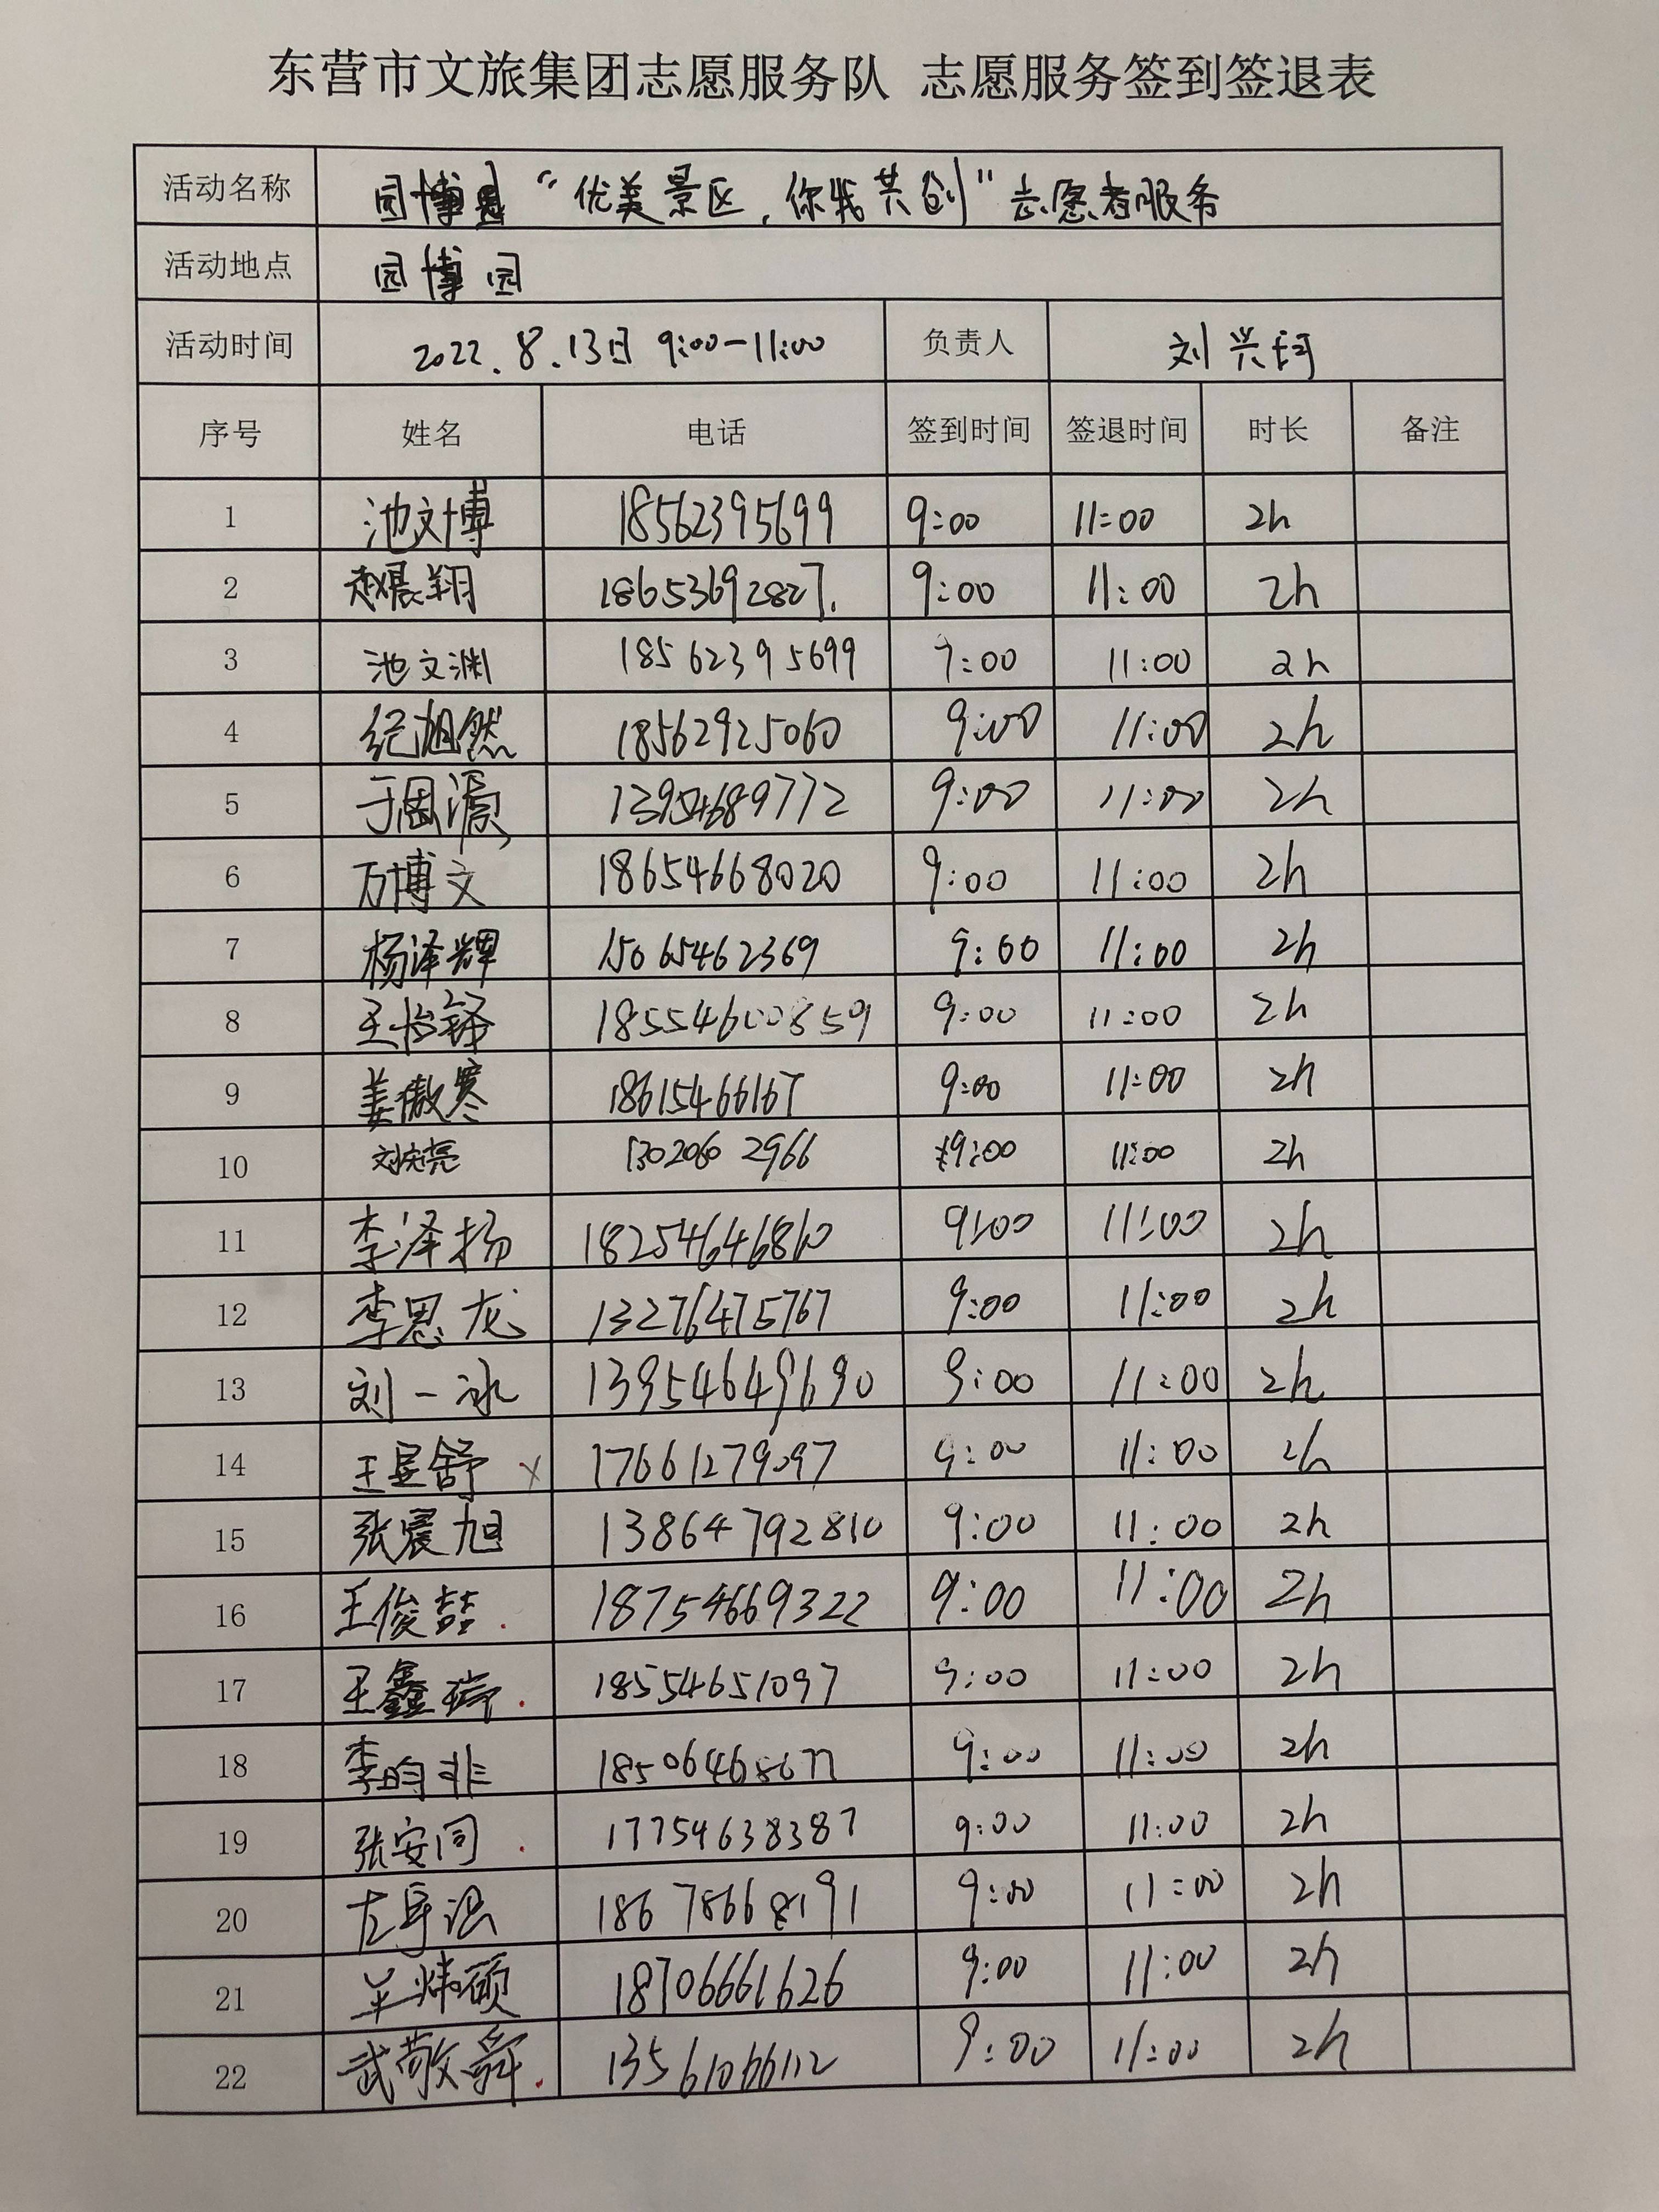 东营市文旅集团志愿服务队 志愿服务签到签退表
活动名称 园博园“优美景区,你我共创”志愿者服务
活动地点 园博园
活动时间 2022.8.13日 9:00-11:00 负责人 刘兴珂
序号 姓名 电话 签到时间 签退时间 时长 备注
1 池文博 18562395699 9:00 11:00 2h
2 赵晨翔 18653692827. 9:00 11:00 2h
3 池文渊 18562395699 9:00 11:00 2h
4 纪旭然 18562925060 9:00 11:00 2h
5 于国源 13954689772 9:00 11:00 2h
6 万博文 18654668020 9:00 11:00 2h
7 杨泽辉 15065462369 9:00 11:00 2h
8 王怡铎 18554600859 9:00 11:00 2h
9 姜傲寒 18615466167 9:00 11:00 2h
10 13020602966 9:00 11:00 2h
11 李泽扬 18254646810 9:00 11:00 2h
12 李思龙 13276475767 9:00 11:00 2h
13 刘一冰 13954649690 9:00 11:00 2h
14 王昱舒 x 17661279097 9:00 11:00 2h
15 张震旭 13864792810 9:00 11:00 2h
16 王俊喆. 18754669322 9:00 11:00 2h
17 王鑫瑞. 18554651097 9:00 11:00 2h
18 李昀非 9:00 11:00 2h
19 张安同. 17754638387 9:00 11:00 2h
20 18678668191 9:00 11:00 2h
21 18706661626 9:00 11:00 2h
22 武敬舜. 13561066112 9:00 11:00 2h